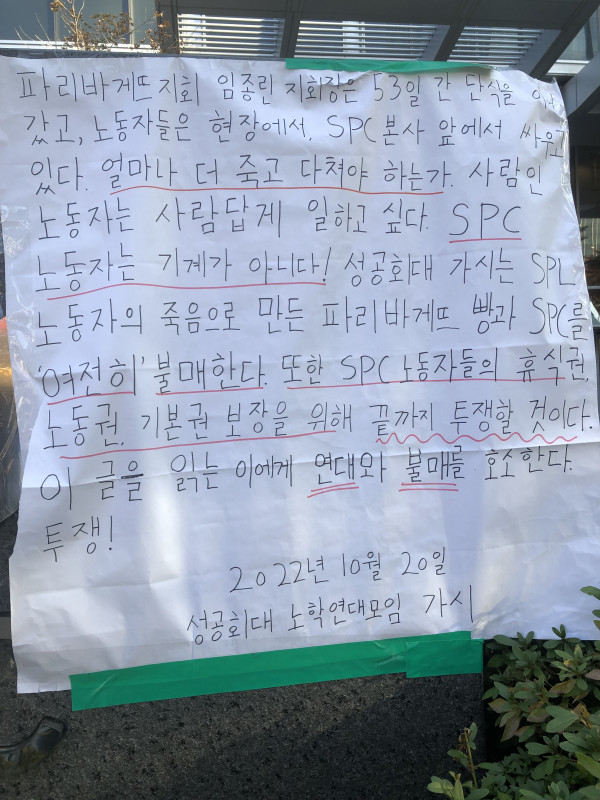 파리바게뜨지회 임종린 지회장은 53일 간 단식을
갔고, 노동자들은 현장에서, SPC본사 앞에서 싸우고
있다. 얼마나 더 죽고 다쳐야 하는가. 사람인
노동자는 사람답게 일하고 싶다. SPC
노동자는 기계가 아니다! 성공회대 가시는 SPL
노동자의 죽음으로 만든 파리바게뜨 빵과 SPC를
'여전히' 불매한다. 또한 SPC노동자들의 휴식권,
노동권, 기본권 보장을 위해 끝까지 투쟁할 것이다.
이 글을 읽는 이에게 연대와 불매를 호소한다.
투쟁!
2022년 10월 20일
성공회대 노학연대모임 가시